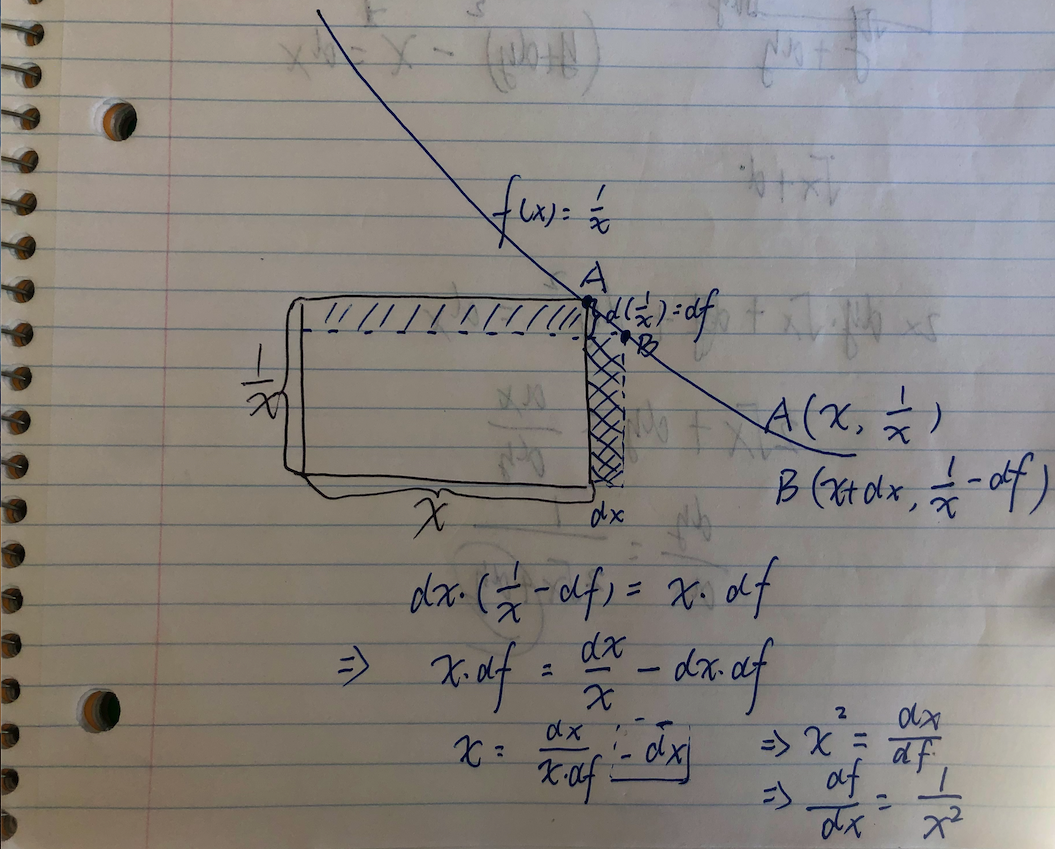 f(x) = 1/x
A
d(1/x) = df
B
1/x
A(x, 1/x)
B(x+dx, 1/x - df)
x
dx
dx·(1/x - df) = x·df
⇒ x·df = dx/x - dx·df
x = dx/(x·df) - dx ⇒ x² = dx/df
⇒ df/dx = 1/x²